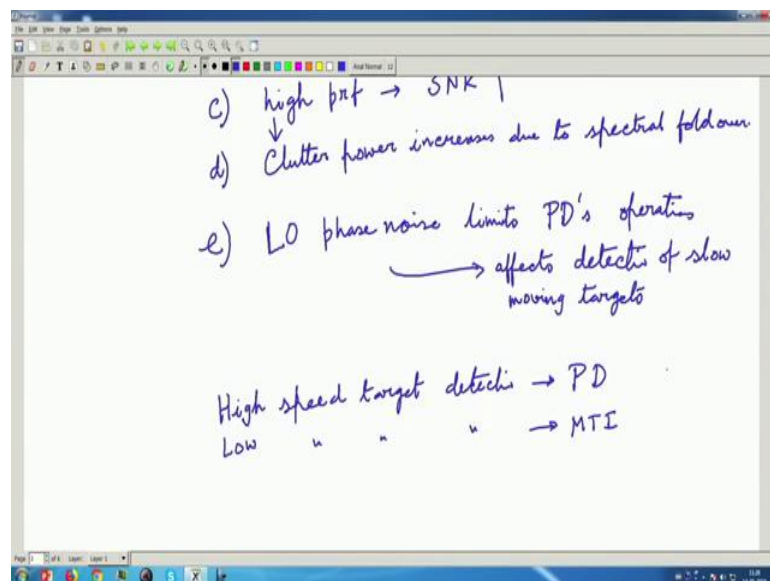 File Edit View Page Tools Options Help
Arial Normal 12
c) high prf → SNR ↑
d) Clutter power increases due to spectral foldover.
e) LO phase noise limits PD's operation
→ affects detection of slow
moving targets
High speed target detection → PD
Low " " " → MTI
Layer: Layer 1